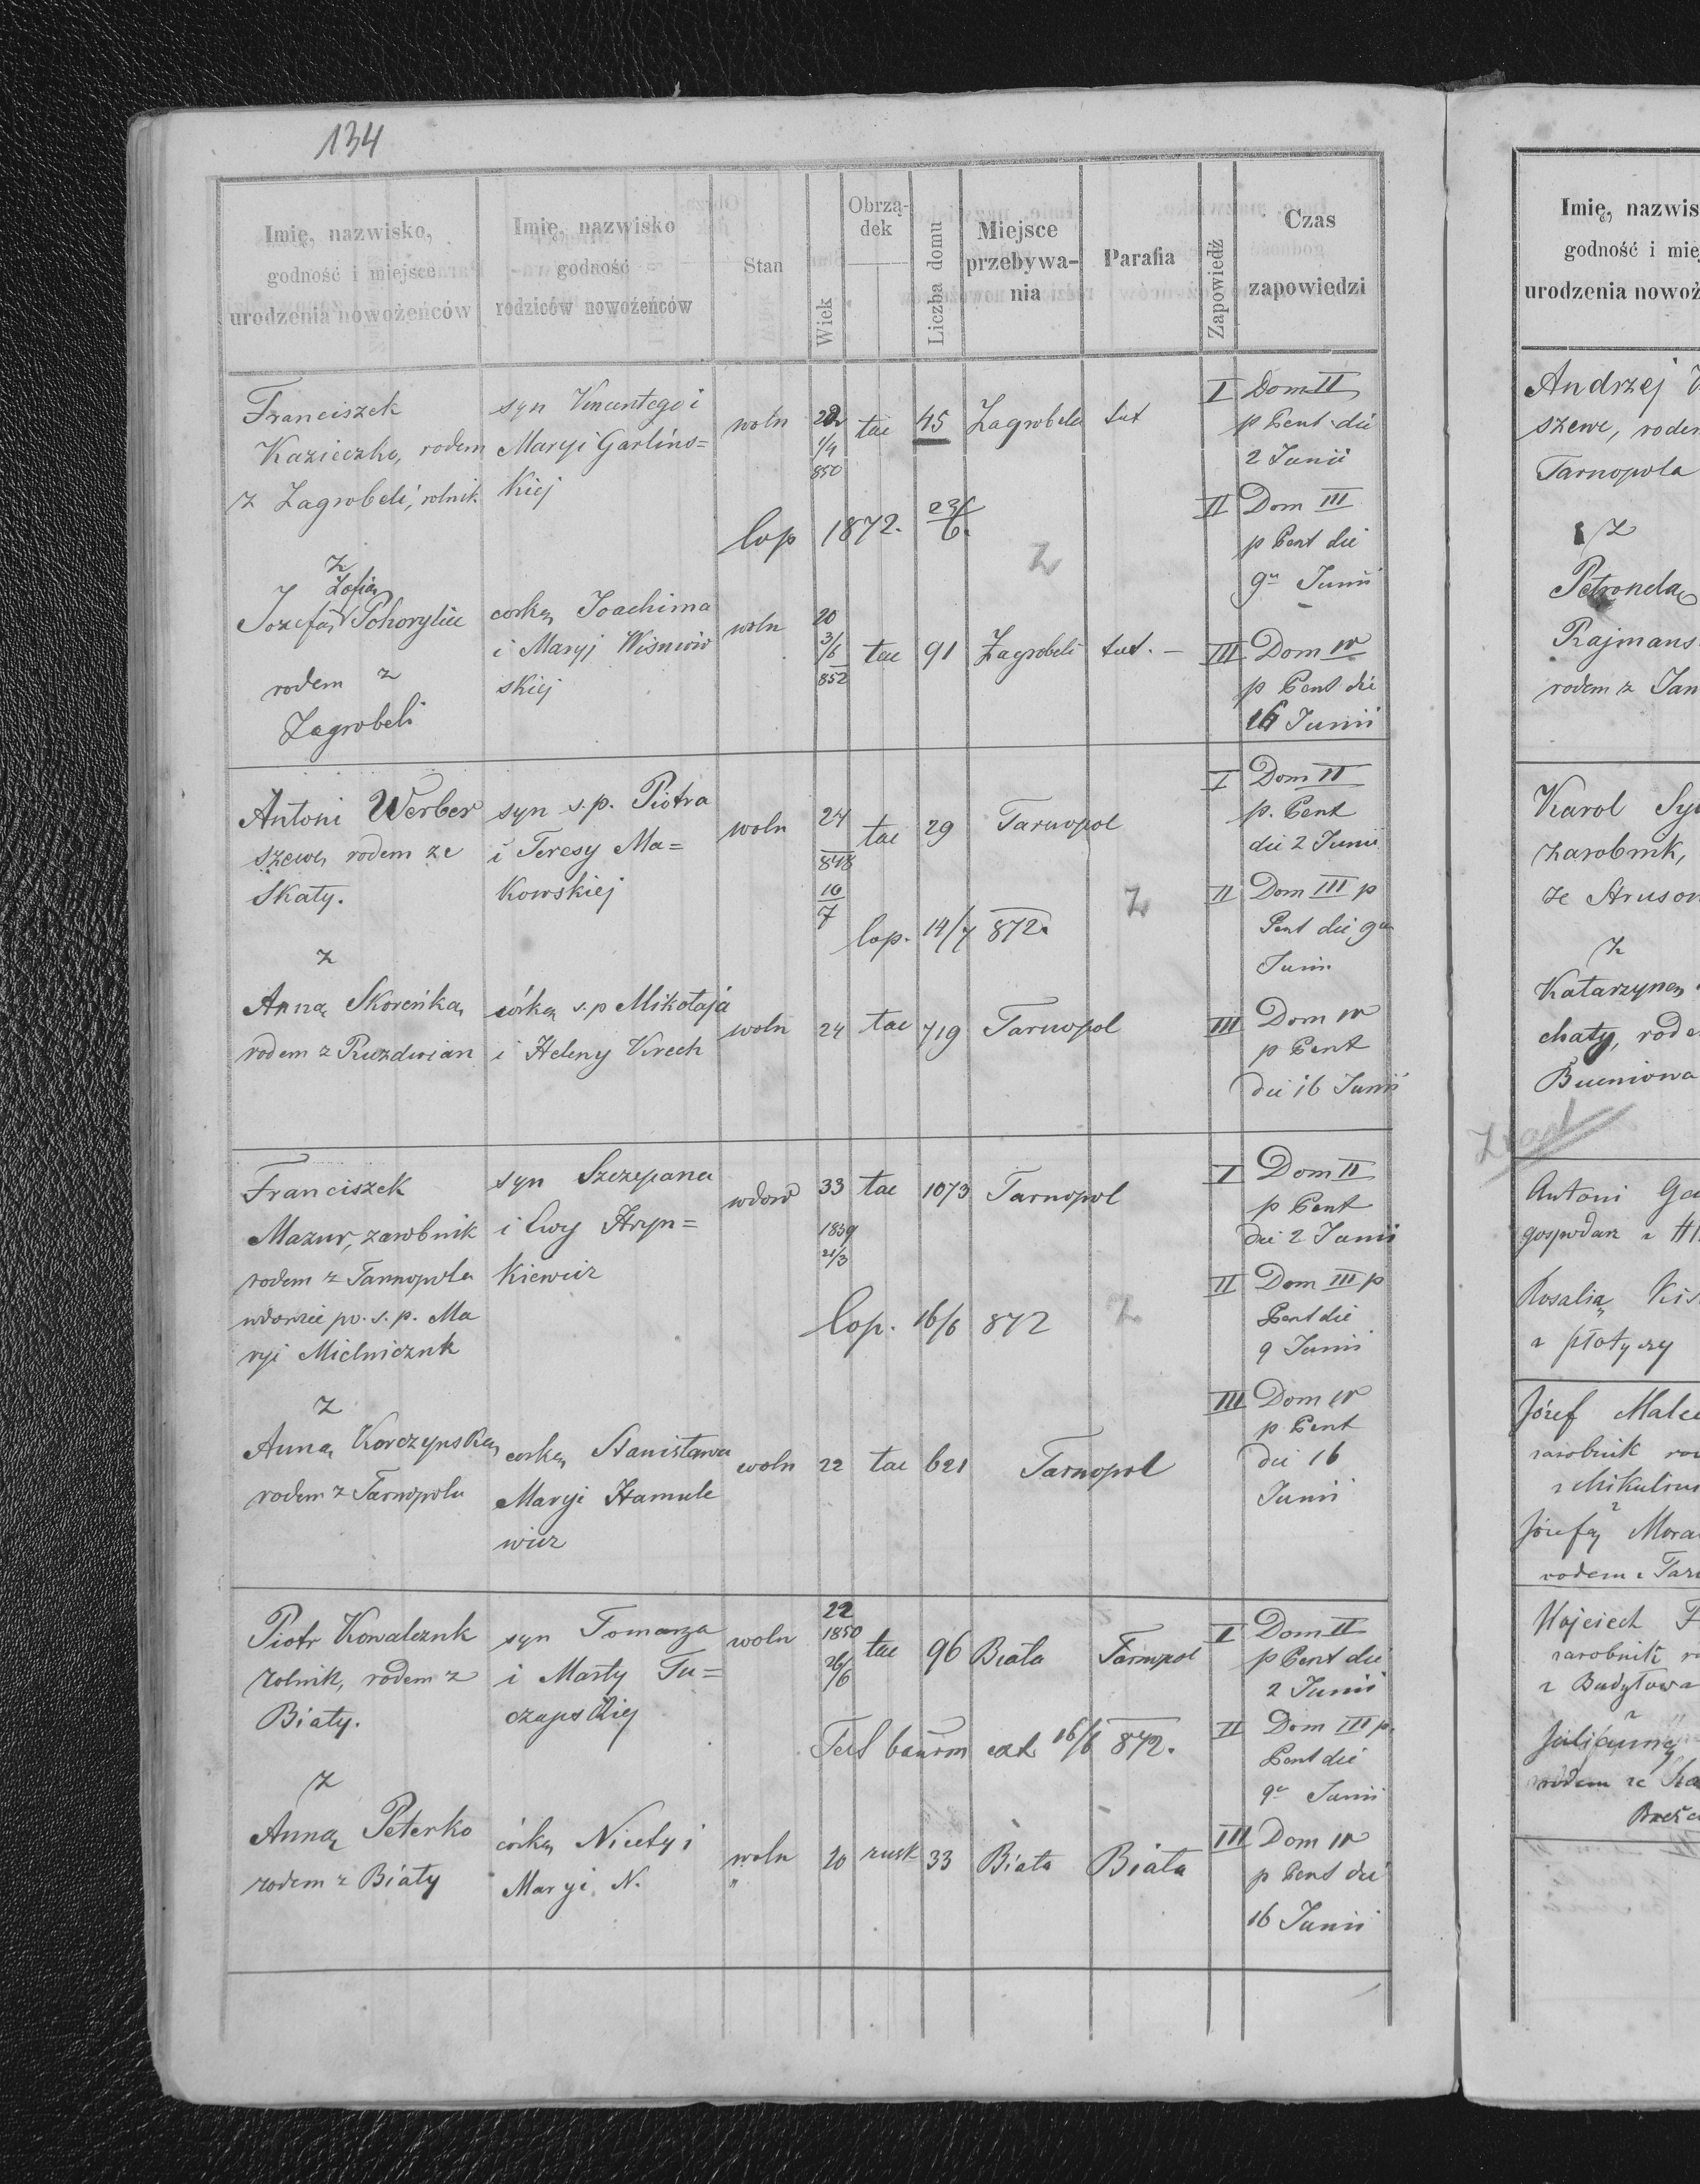 134
Imię, nazwisko, godność i miejsce urodzenia nowożeńców
Imię, nazwisko godność rodziców nowożeńców
Stan
Wiek
Obrządek
Liczba domu
Miejsce przebywania
Parafia
Zapowiedź
Czas zapowiedzi
Franciszek
Kazieczko, rodem
z Zagrobeli, rolnik
syn Vincentego i
Maryi Garlińs=
kiej
woln
1/4
850
tac
45
Zagrobela
tut
I Dom II
p Pent die
2 Junii
cop 1872. 23/6.
Z
II Dom III
p Pent die
9a Junii
z
Zofią
Jozefą Pohorylic
rodem z
Zagrobeli
corką Joachima
i Maryi Wisniow
skiej
woln
20
3/6
852
tac
91
Zagrobeli
tut. –
III Dom IV
p Pent die
16 Junii
Antoni Werber
szewc, rodem ze
Skaty.
syn s.p. Piotra
i Teresy Ma=
kowskiej
woln
24
848
16
7
tac
29
Tarnopol
I Dom II
p. Pent
die 2 Junii
cop. 14/7 872.
Z
II Dom III p
Pent die 9a
Junii
z
Anną Skoreńką
rodem z Ruzdwian
córką s.p Mikołaja
i Heleny Krech
woln
24
tac
719
Tarnopol
III Dom IV
p Pent
die 16 Junii
Franciszek
Mazur, zarobnik
rodem z Tarnopola
wdowiec po. s. p. Ma
ryi Mielniczuk
syn Szczepana
i Ewy Hryn=
kiewicz
wdow
33
1839
21/3
tac
1073
Tarnopol
I Dom II
p Pent
die 2 Junii
cop. 16/6 872
Z
II Dom III p
Pent die
9 Junii
z
Anną Korczynską
rodem z Tarnopola
corką Stanisława
Maryi Hamule
wicz
woln
22
tac
621
Tarnopol
III Dom IV
p Pent
die 16
Junii
Piotr Kowalczuk
rolnik, rodem z
Biały.
syn Tomasza
i Marty Tu=
czapskiej
woln
22
1850
26/6
tac
96
Biała
Tarnopol
I Dom II
p Pent die
2 Junii
16/6 872.
II Dom III p.
Pent die
9a Junii
z
Anną Peterko
rodem z Biały
córką Nicety i
Maryi N.
woln
"
20
rusk
33
Biała
Biała
III Dom IV
p Pent die
16 Junii
Imię, nazwis
godność i mie
urodzenia nowoż
Andrzej
szewc, rodem
Tarnopola
z
Petronelą
Rajmans
rodem z Jan
Karol Sy
zarobnik,
ze Struson
z
Katarzyną
chaty, rode
Bucniowa
Antoni Ga
gospodarz z
Rosalią Kis
z płotyczy
Józef Malee
zarobnik ro
z Mikulinie
z
Józefą Mora
rodem z Tar
Wojciech
zarobnik ro
z Budyłowa
z
Julianną
rodem ze